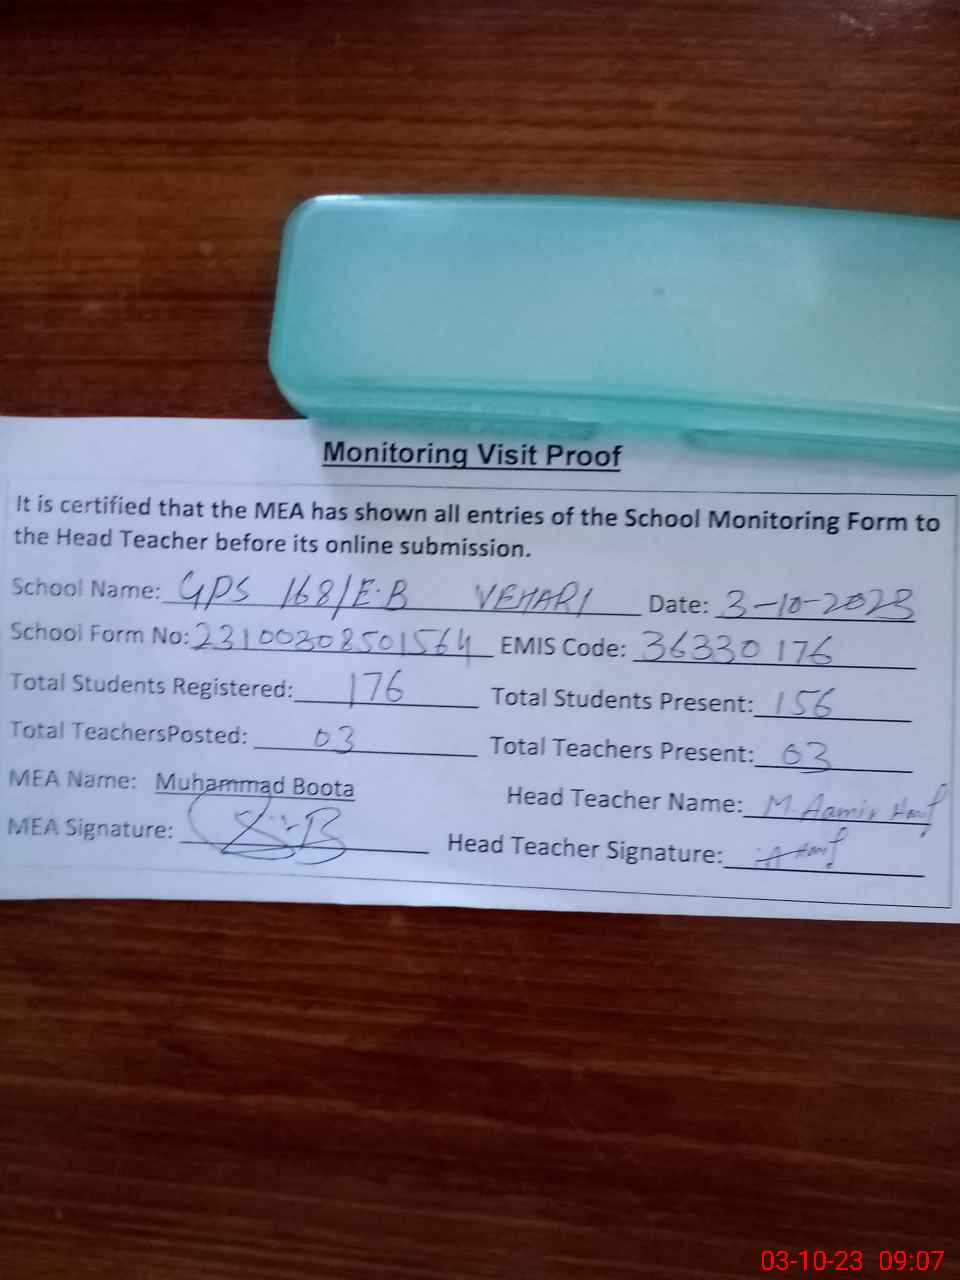 Monitoring Visit Proof
It is certified that the MEA has shown all entries of the School Monitoring Form to
the Head Teacher before its online submission.
School Name: GPS 168/E.B VEHARI Date: 3-10-2023
School Form No: 23100308501564 EMIS Code: 36330176
Total Students Registered: 176 Total Students Present: 156
Total TeachersPosted: 03 Total Teachers Present: 03
MEA Name: Muhammad Boota Head Teacher Name: M. Aamir Hanif
MEA Signature: Head Teacher Signature:
03-10-23 09:07